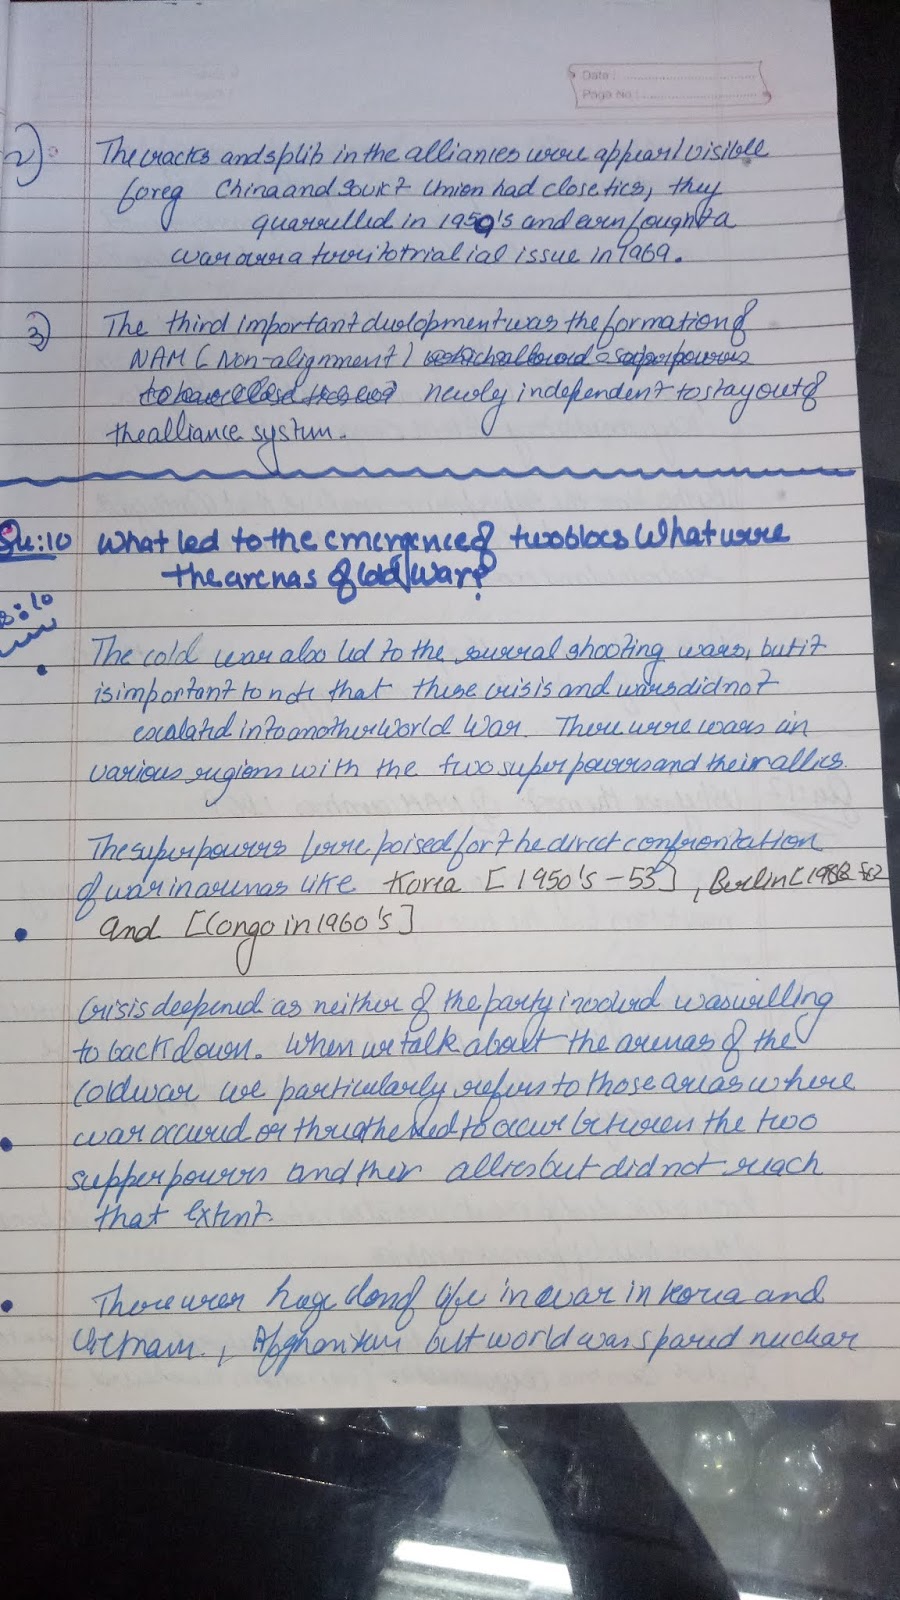 Date :
Page No :
2) The cracks and split in the alliances were appear/visible
foreg China and Soviet Union had close ties, they
quarrelled in 1950's and even fought a
war over a territotrial ial issue in 1969.
3) The third important development was the formation of
NAM (Non-alignment) which allowed superpowers
to have newly independent to stay out of
the alliance system.
Qu:10 What led to the emergence of two blocs What were
the arenas of Cold War?
s:10
• The cold war also led to the several shooting wars, but it
is important to note that these crisis and wars did not
escalated into another World War. There were wars in
various regions with the two superpowers and their allies.
The superpowers were poised for the direct confrontation
of war in arenas like Korea [1950's-53], Berlin [1958-62
• and [Congo in 1960's]
Crisis deepened as neither of the party involved was willing
to back down. When we talk about the arenas of the
Coldwar we particularly refers to those areas where
• war occured or threathened to occur between the two
supperpowers and their allies but did not reach
that extent.
• There were huge of life in war in Korea and
Vietnam., Afghanistan but world was spared nuclear